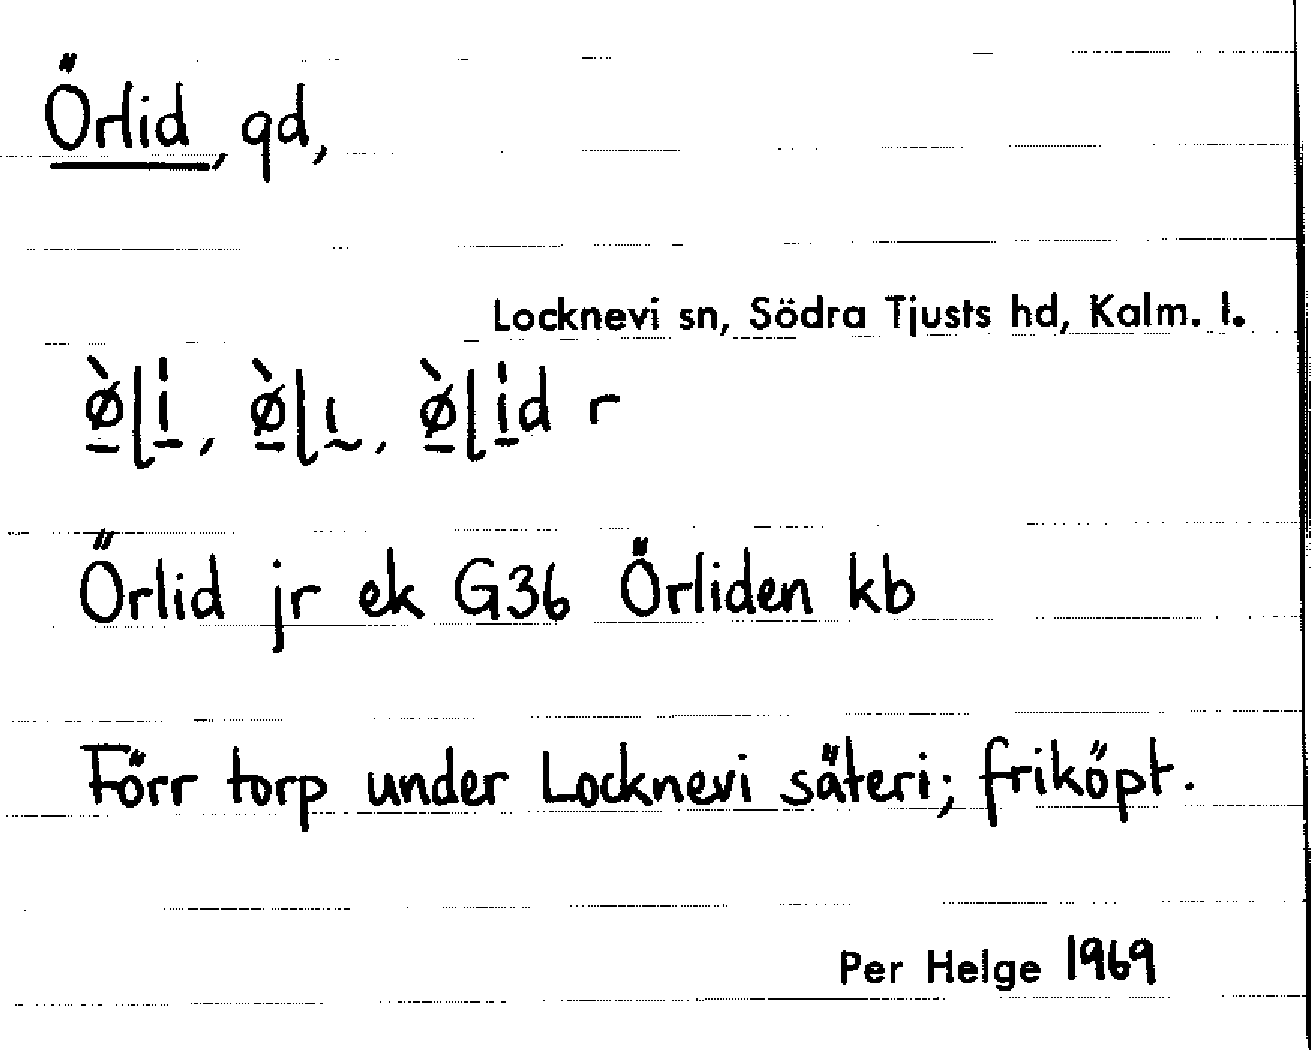 Örlid, gd,
Locknevi sn, Södra Tjusts hd, Kalm. l.
ø̲̀ɭi̲, ø̲̀ɭɩ̰, ø̲̀ɭi̲d r
Örlid jr ek G36 Örliden kb
Förr torp under Locknevi säteri; friköpt.
Per Helge 1969